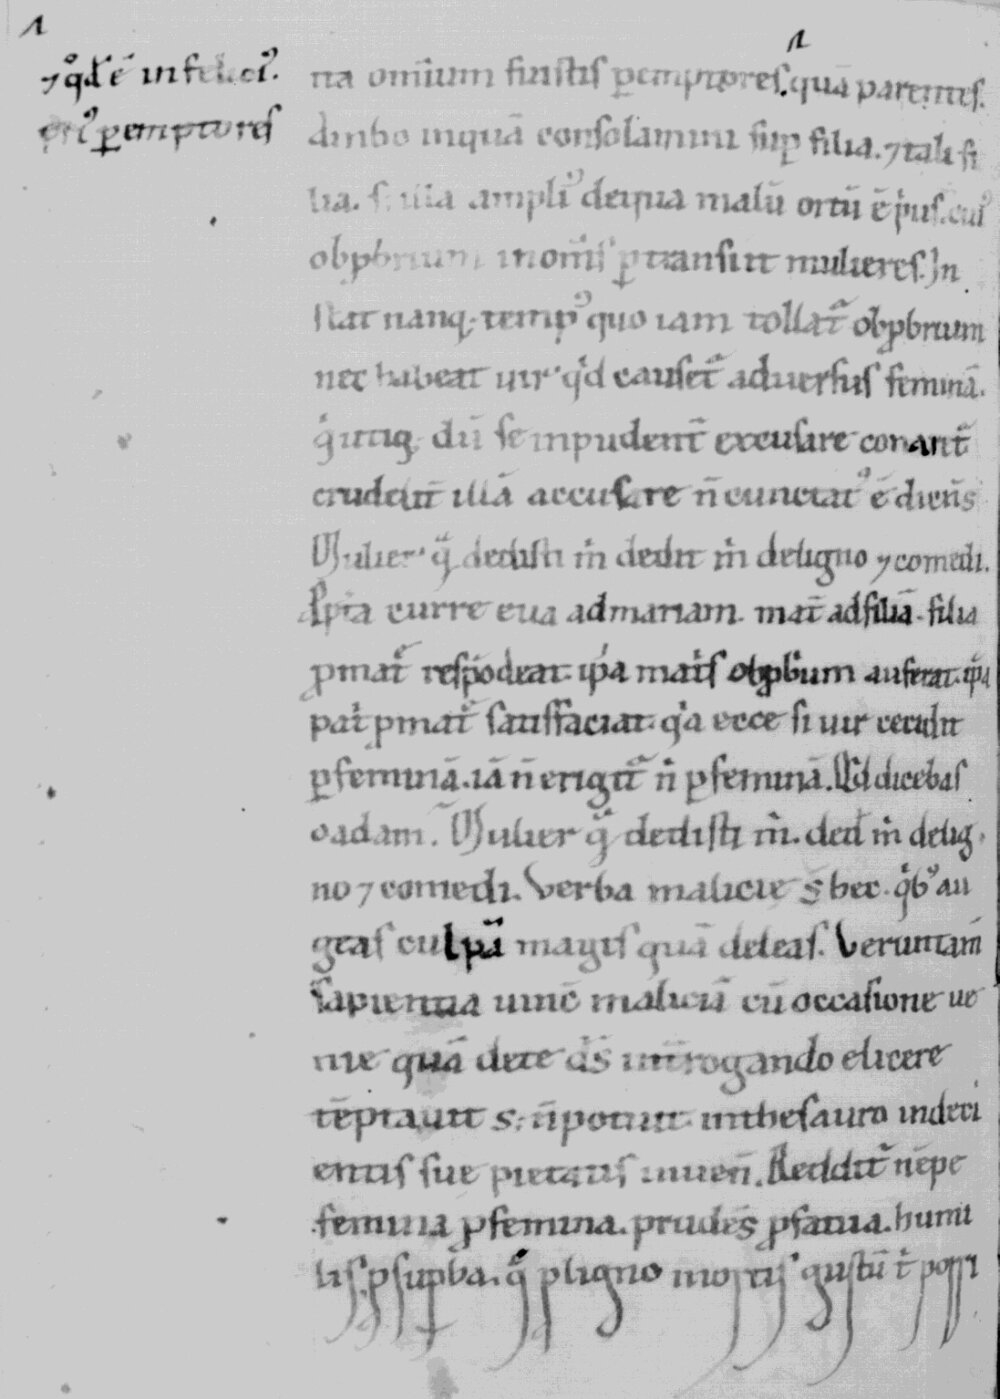 ⁊ qd̓ ē infelici᷒.
ori᷒ ꝑemptores
na omīum fuistis ꝑemptores. quā parentes.
Ambo inquā consolamini suꝑ filia. ⁊ tali fi
lia. s; illa ampli᷒ de qua malū ortū ē p̓us. cui᷒
obꝓbrium in om̄s ꝑtransiit mulieres. In
stat nanq; temp᷒ quo iam tollat᷑ obꝓbrium
nec habeat uir qd̓ causet᷑ aduersus feminā.
q̓ utiq; dū se inpudent᷑ excusare conant᷑
crudelit̄ illā accusare n̄ cunctat᷒ ē dicēs
Mulier qͣ dedisti m̓ dedit m̓ de ligno ⁊ comedi.
Ꝓpt̄a curre eua ad mariam. mat̄ ad filiā. filia
ꝓ mat̓ respōdeat. ip̄a mat̓s obꝓbiū auferat. ip̄a
pat̓ ꝓ mat̓ satisfaciat. qͥa ecce si uir cecidit
ꝑ feminā. iā n̄ erigit᷑ n̓ ꝑ feminā. Qd̓ dicebas
o adam. Mulier qͣ dedisti m̓. ded̓ m̓ de lig
no ⁊ comedi. Verba malicie s̄ hec. qͥb᷒ au
geas culpā magis quā deleas. Veruntam̄
sapientia uinc̄ maliciā cū occasione ue
nie quā de te d̄s int̄rogando elicere
tēptauit s; n̄ potuit. in thesauro indefici
entis sue pietatis inuen̄. Reddit᷑ nēpe
femina ꝓ femina. prudēs ꝓ fatua. humi
lis ꝓ suꝑba. qͣ ꝓ ligno mortis gustū t̓ porri